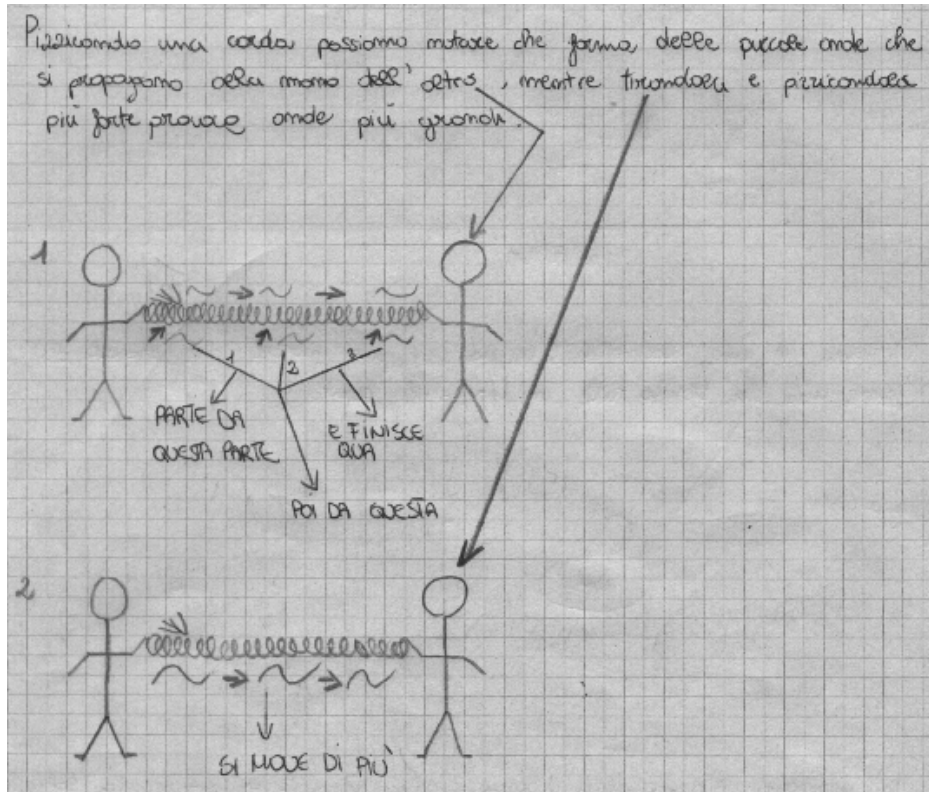 Pizzicando una corda possiamo notare che forma delle piccole onde che
si propagano alla mano dell'altro, mentre tirandola e pizzicandola
più forte provoce onde più grandi.
1
1 2 3
PARTE DA
QUESTA PARTE
E FINISCE
QUA
POI DA QUESTA
2
SI MOVE DI PIÙ